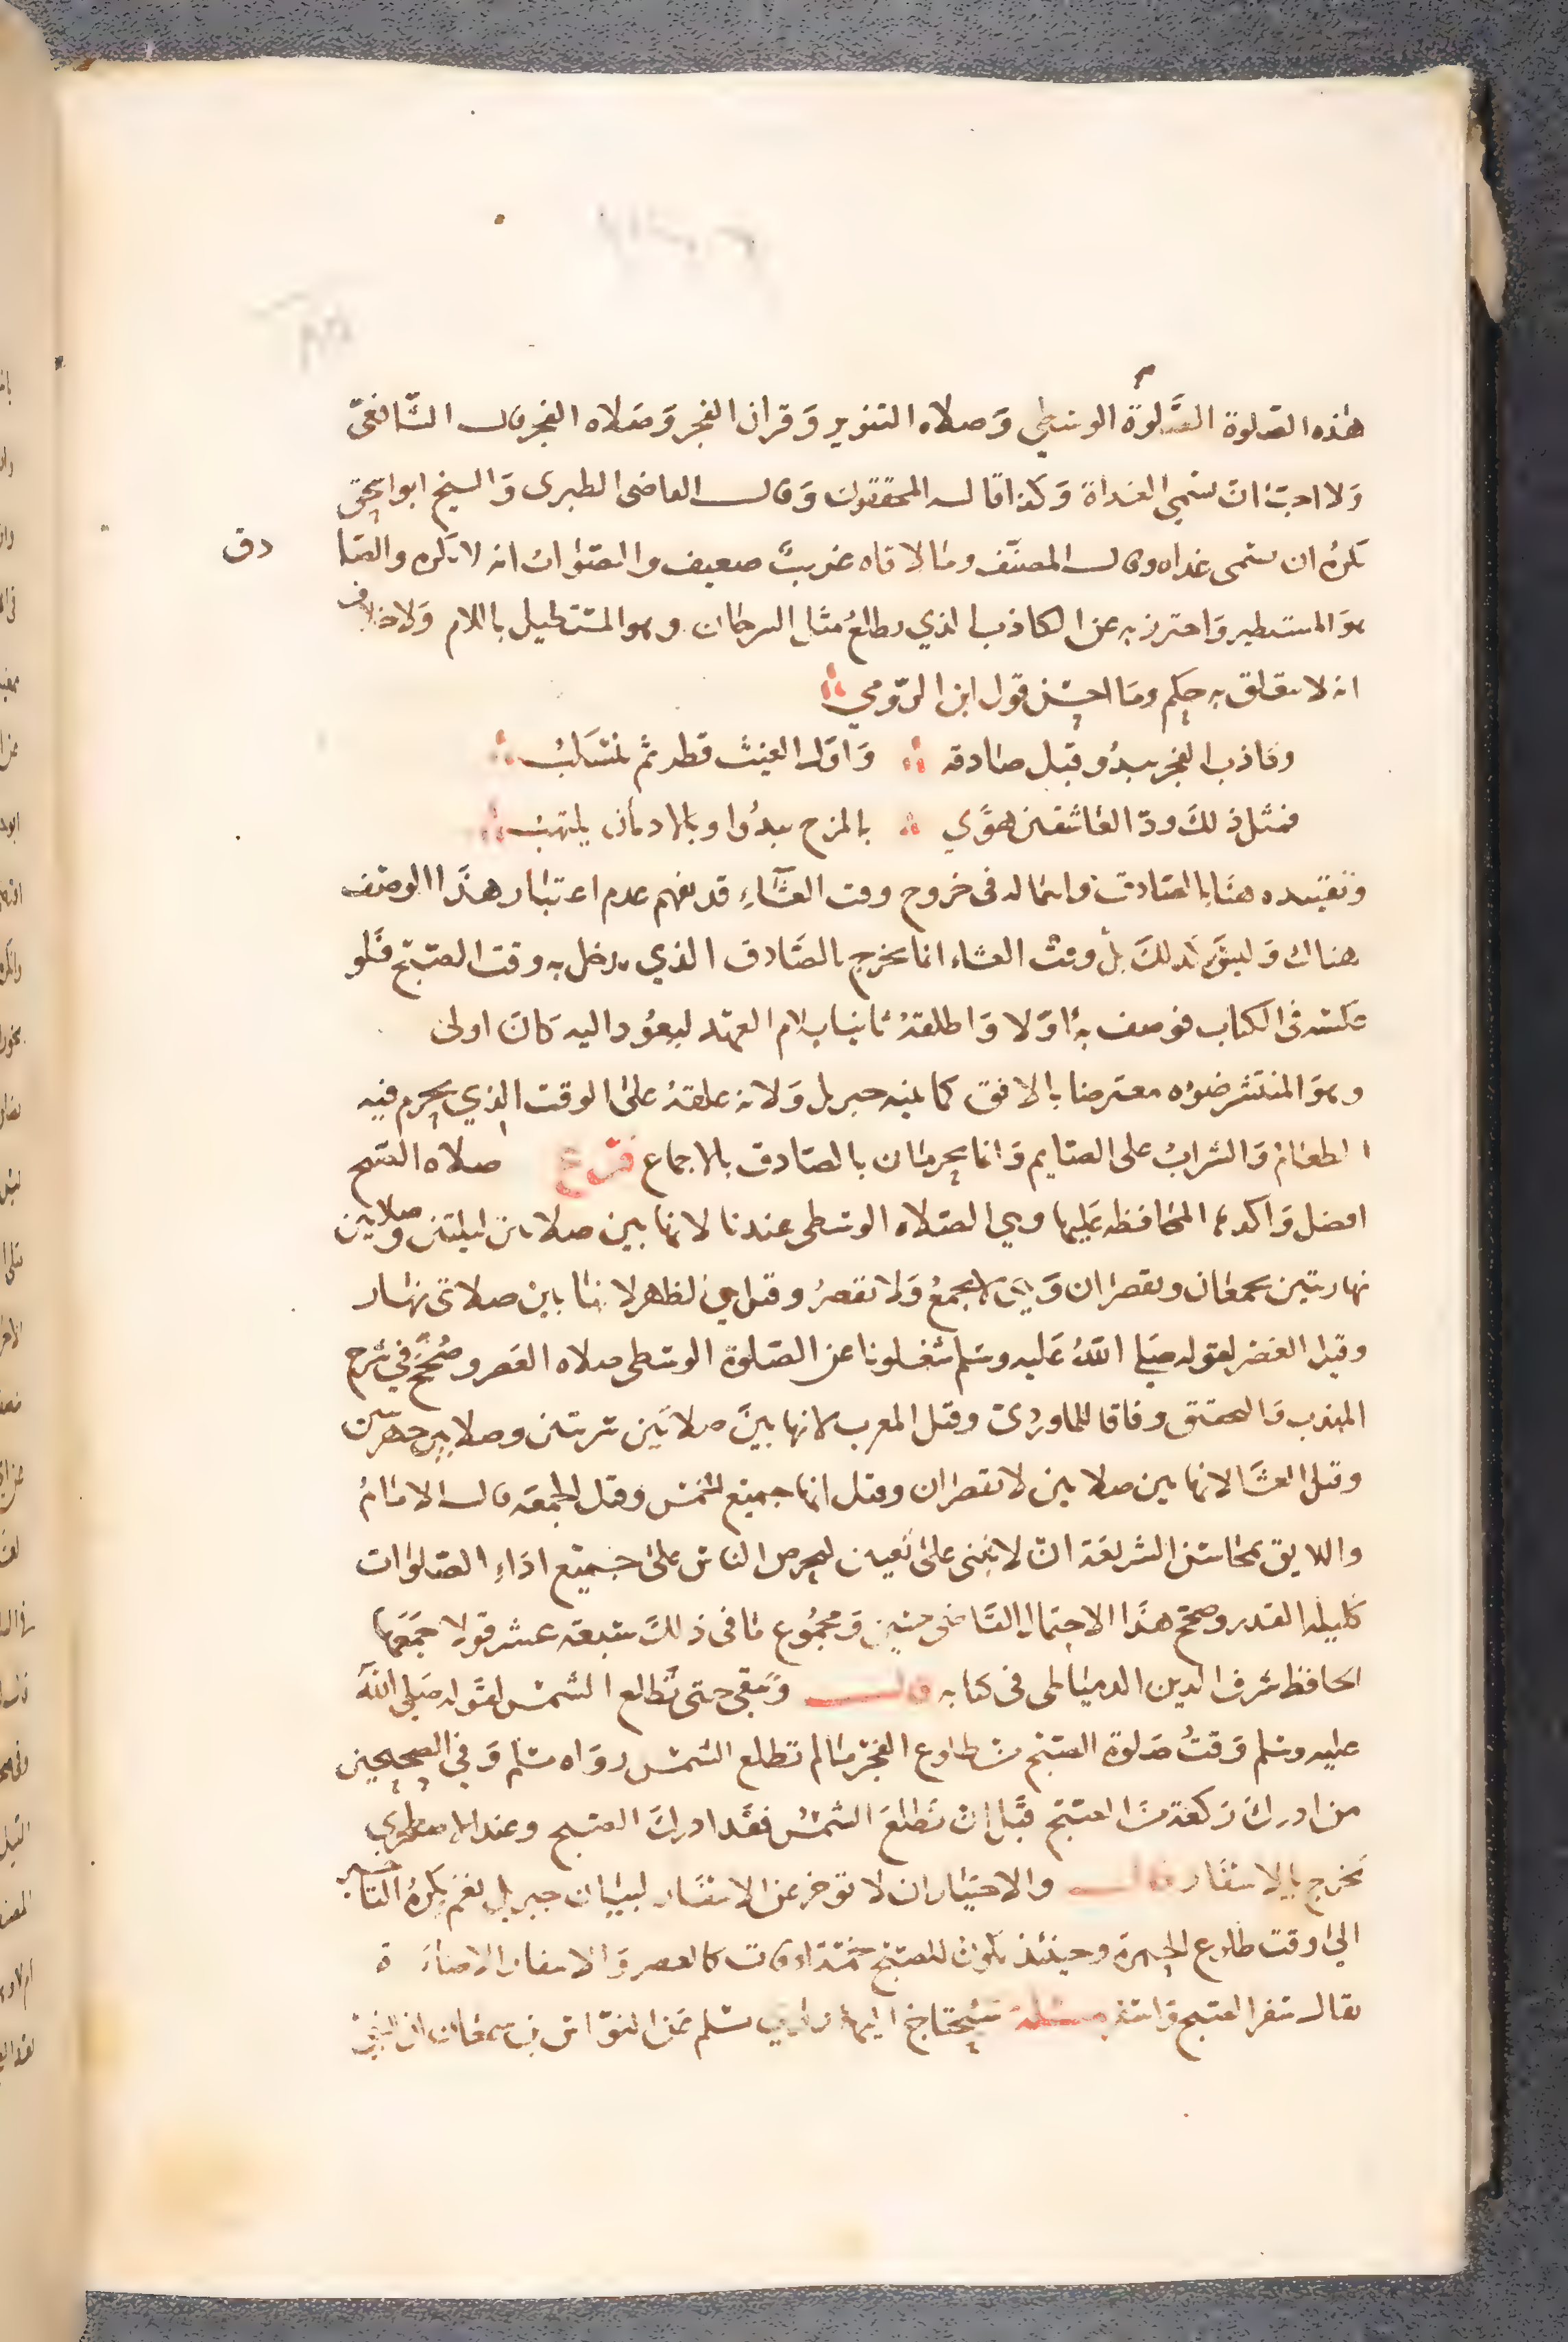 هذه الصلوة الصلوة الوسطي وصلاه التنوير وقران الفجر وصلاه الفجر قال الشافعي
ولا احب ان تسمي الغداة وكذا قاله المحققون وقال القاضي الطبري والشيخ ابو اسحق
يكره ان تسمى غداه وقال المصنف وما قالاه غريب ضعيف والصواب انه لا يكره والصا دق
هو المستطير واحترز به عن الكاذب الذي يطلع مثل السرحان وهو المستطيل باللام ولا خلاف
انه لا يتعلق به حكم وما احسن قول ابن الرومي
وكاذب الفجر يبدو قبل صادقه وأول الغيث قطر ثم ينسكب
فمثل ذلك ود العاشقين هوًى بالمزح يبدوا وبالادمان يلتهب
وتقييده هنا بالصادق واهماله في خروج وقت العشاء قد يفهم عدم اعتبار هذا الوصف
هناك وليس كذلك بل وقت العشاء انما يخرج بالصادق الذي يدخل به وقت الصبح فلو
عكسه في الكتاب فوصف به أولا واطلقه ثانيا بلام العهد ليعود اليه كان اولى
وهو المنتشر ضوءه معترضا بالافق كما بينه جبريل ولانه علقه على الوقت الذي يحرم فيه
الطعام والشراب على الصايم وانما يحرمان بالصادق بالاجماع فرع صلاه الصبح
افضل واكد المحافظه عليها وهي الصلاه الوسطى عندنا لانها بين صلاتين ليلتين وصلاتين
نهاريتين يجمعان ويقصران وهي لا تجمع ولا تقصر وقيل هي الظهر لانها بين صلاتي نهار
وقيل العصر لقوله صلى الله عليه وسلم شغلونا عن الصلوة الوسطى صلاه العصر وصححه في شرح
المهذب والتحقيق وفاقا للماوردي وقيل المغرب لانها بين صلاتين سريتين وصلاتين جهريتين
وقيل العشا لانها بين صلاتين لا تقصران وقيل انها جميع الخمس وقيل الجمعه قال الامام
واللايق بمحاسن الشريعة ان لا تبنى على تعيين ليحرص الناس على جميع اداء الصلوات
كليلة القدر وصحح هذا الاحتمال القاضي حسين ومجموع ما في ذلك سبعة عشر قولا جمعها
الحافظ شرف الدين الدمياطي في كتابه قال وتبقى حتى تطلع الشمس لقوله صلى الله
عليه وسلم وقت صلوة الصبح من طلوع الفجر ما لم تطلع الشمس رواه مسلم وفي الصحيحين
من ادرك ركعة من الصبح قبل ان تطلع الشمس فقد ادرك الصبح وعند الاصطخري
تخرج بالاسفار قال والاختيار ان لا توخر عن الاسفار لبيان جبريل نعم يكره التاخير
الى وقت طلوع الحمرة وحينئذ يكون للصبح خمسة اوقات كالعصر والاسفار الاضاءة
يقال سفر الصبح واسفر مسئلة يحتاج اليها روي مسلم عن النواس بن سمعان ان النبي